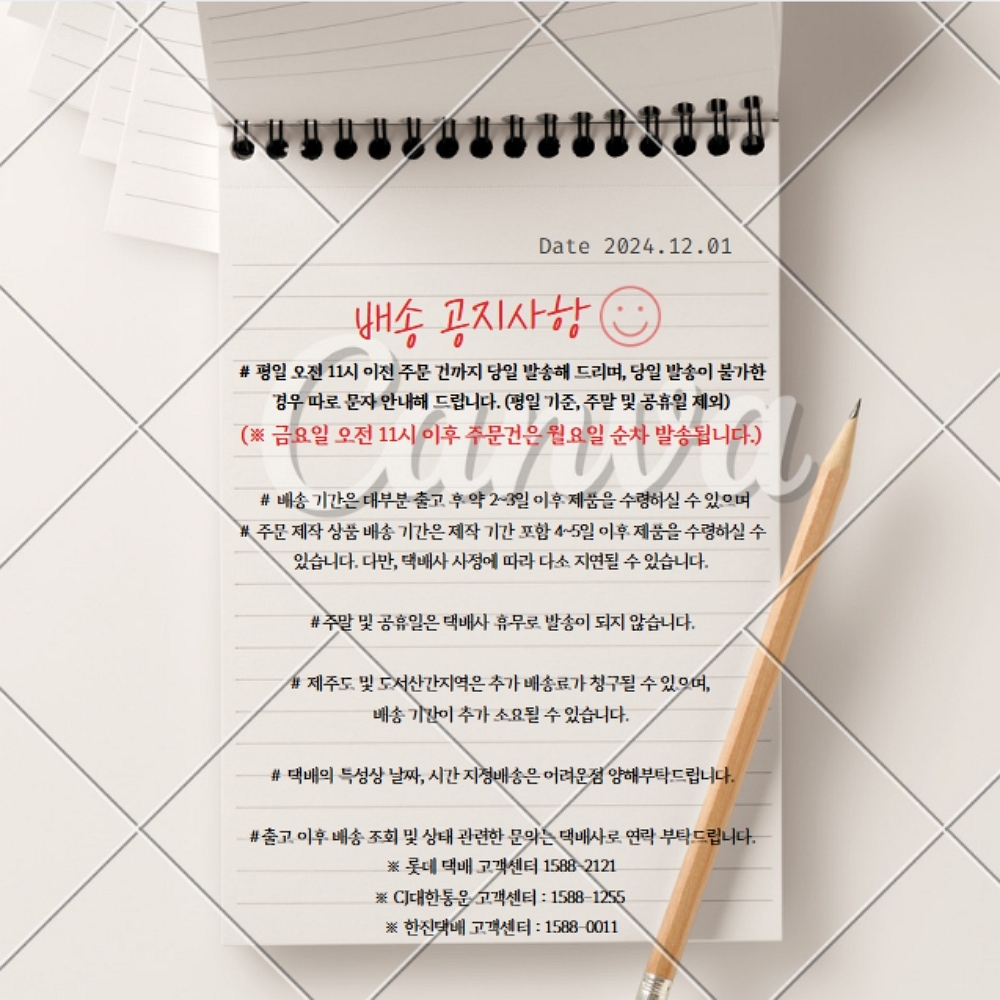 Date 2024.12.01
배송 공지사항
# 평일 오전 11시 이전 주문 건까지 당일 발송해 드리며, 당일 발송이 불가한
경우 따로 문자 안내해 드립니다. (평일 기준, 주말 및 공휴일 제외)
(※ 금요일 오전 11시 이후 주문건은 월요일 순차 발송됩니다.)
# 배송 기간은 대부분 출고 후 약 2~3일 이후 제품을 수령하실 수 있으며
# 주문 제작 상품 배송 기간은 제작 기간 포함 4~5일 이후 제품을 수령하실 수
있습니다. 다만, 택배사 사정에 따라 다소 지연될 수 있습니다.
#주말 및 공휴일은 택배사 휴무로 발송이 되지 않습니다.
# 제주도 및 도서산간지역은 추가 배송료가 청구될 수 있으며,
배송 기간이 추가 소요될 수 있습니다.
# 택배의 특성상 날짜, 시간 지정배송은 어려운점 양해부탁드립니다.
#출고 이후 배송 조회 및 상태 관련한 문의는 택배사로 연락 부탁드립니다.
※ 롯데 택배 고객센터 1588-2121
※ CJ대한통운 고객센터 : 1588-1255
※ 한진택배 고객센터 : 1588-0011
Canva